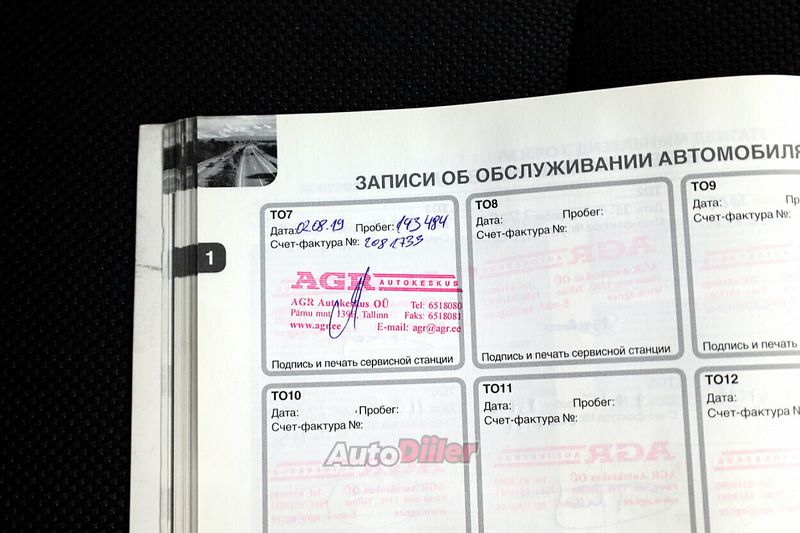 ЗАПИСИ ОБ ОБСЛУЖИВАНИИ АВТОМОБИЛЯ
1
ТО7
Дата: 02.08.19 Пробег: 143 484
Счет-фактура №: 2081733
AGR AUTOKESKUS
AGR Autokeskus OÜ Tel: 6518080
Pärnu mnt. 139E, Tallinn Faks: 6518081
www.agr.ee E-mail: agr@agr.ee
Подпись и печать сервисной станции
ТО8
Дата: Пробег:
Счет-фактура №:
Подпись и печать сервисной станции
ТО9
Дата: Пр
Счет-фактура №:
Подпись и печать
ТО10
Дата: Пробег:
Счет-фактура №:
ТО11
Дата: Пробег:
Счет-фактура №:
ТО12
Дата:
Счет-фактура №
AutoDiiler